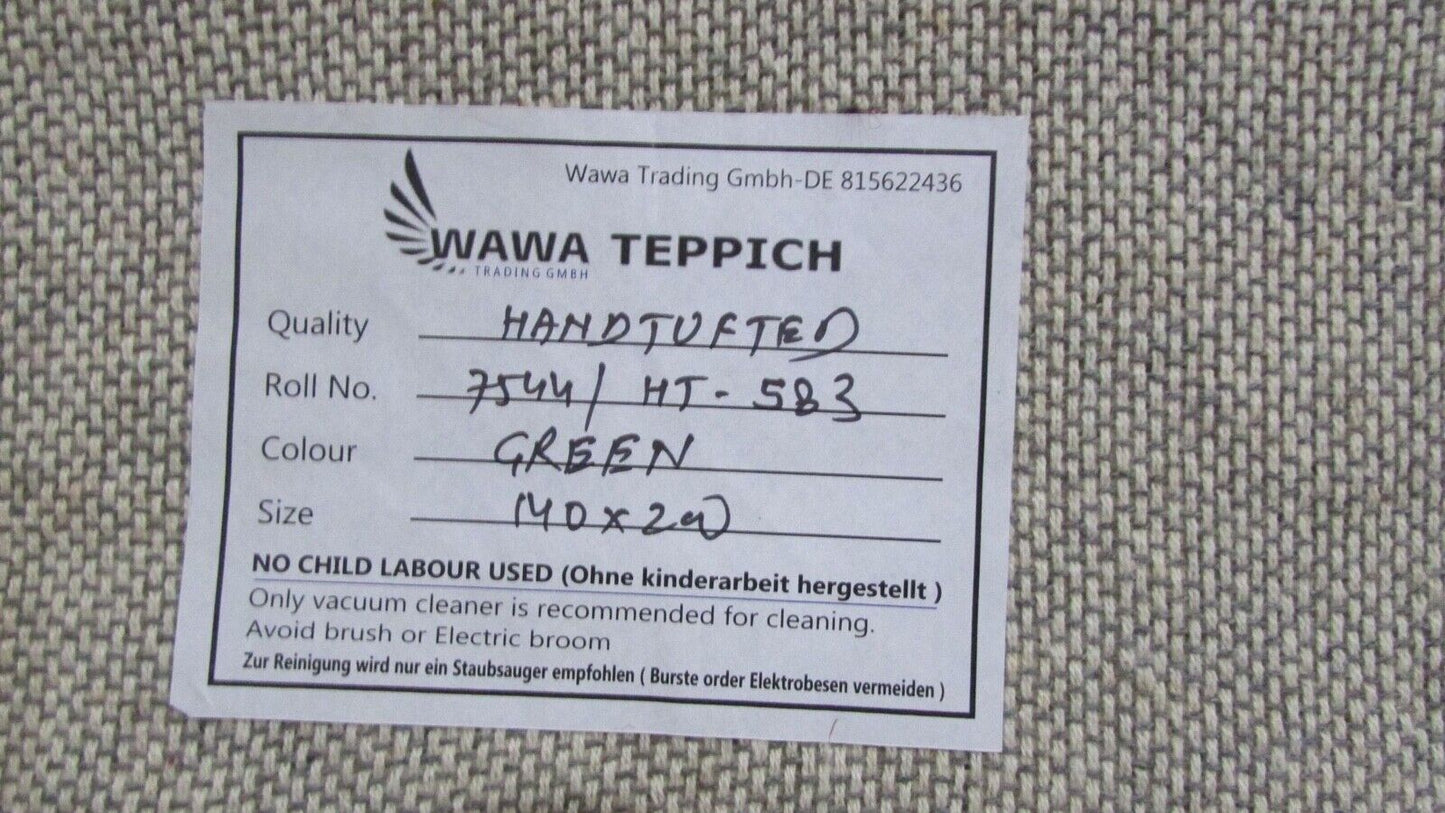 Wawa Trading Gmbh-DE 815622436
WAWA TEPPICH
TRADING GMBH
Quality HANDTUFTED
Roll No. 7544/ HT-583
Colour GREEN
Size 140x200
NO CHILD LABOUR USED (Ohne kinderarbeit hergestellt )
Only vacuum cleaner is recommended for cleaning.
Avoid brush or Electric broom
Zur Reinigung wird nur ein Staubsauger empfohlen ( Burste order Elektrobesen vermeiden )